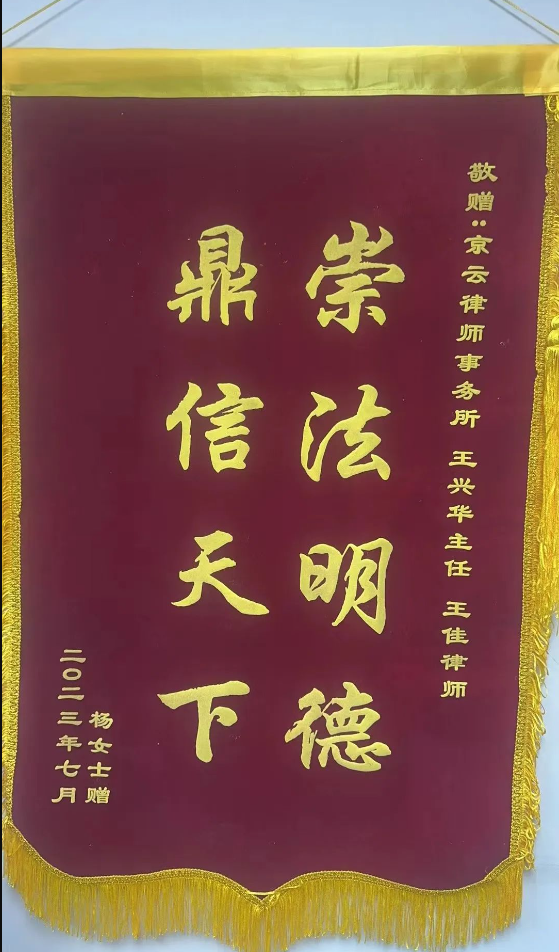 敬赠：京云律师事务所 王兴华主任 王佳律师
崇法明德
鼎信天下
杨女士赠
二〇二三年七月